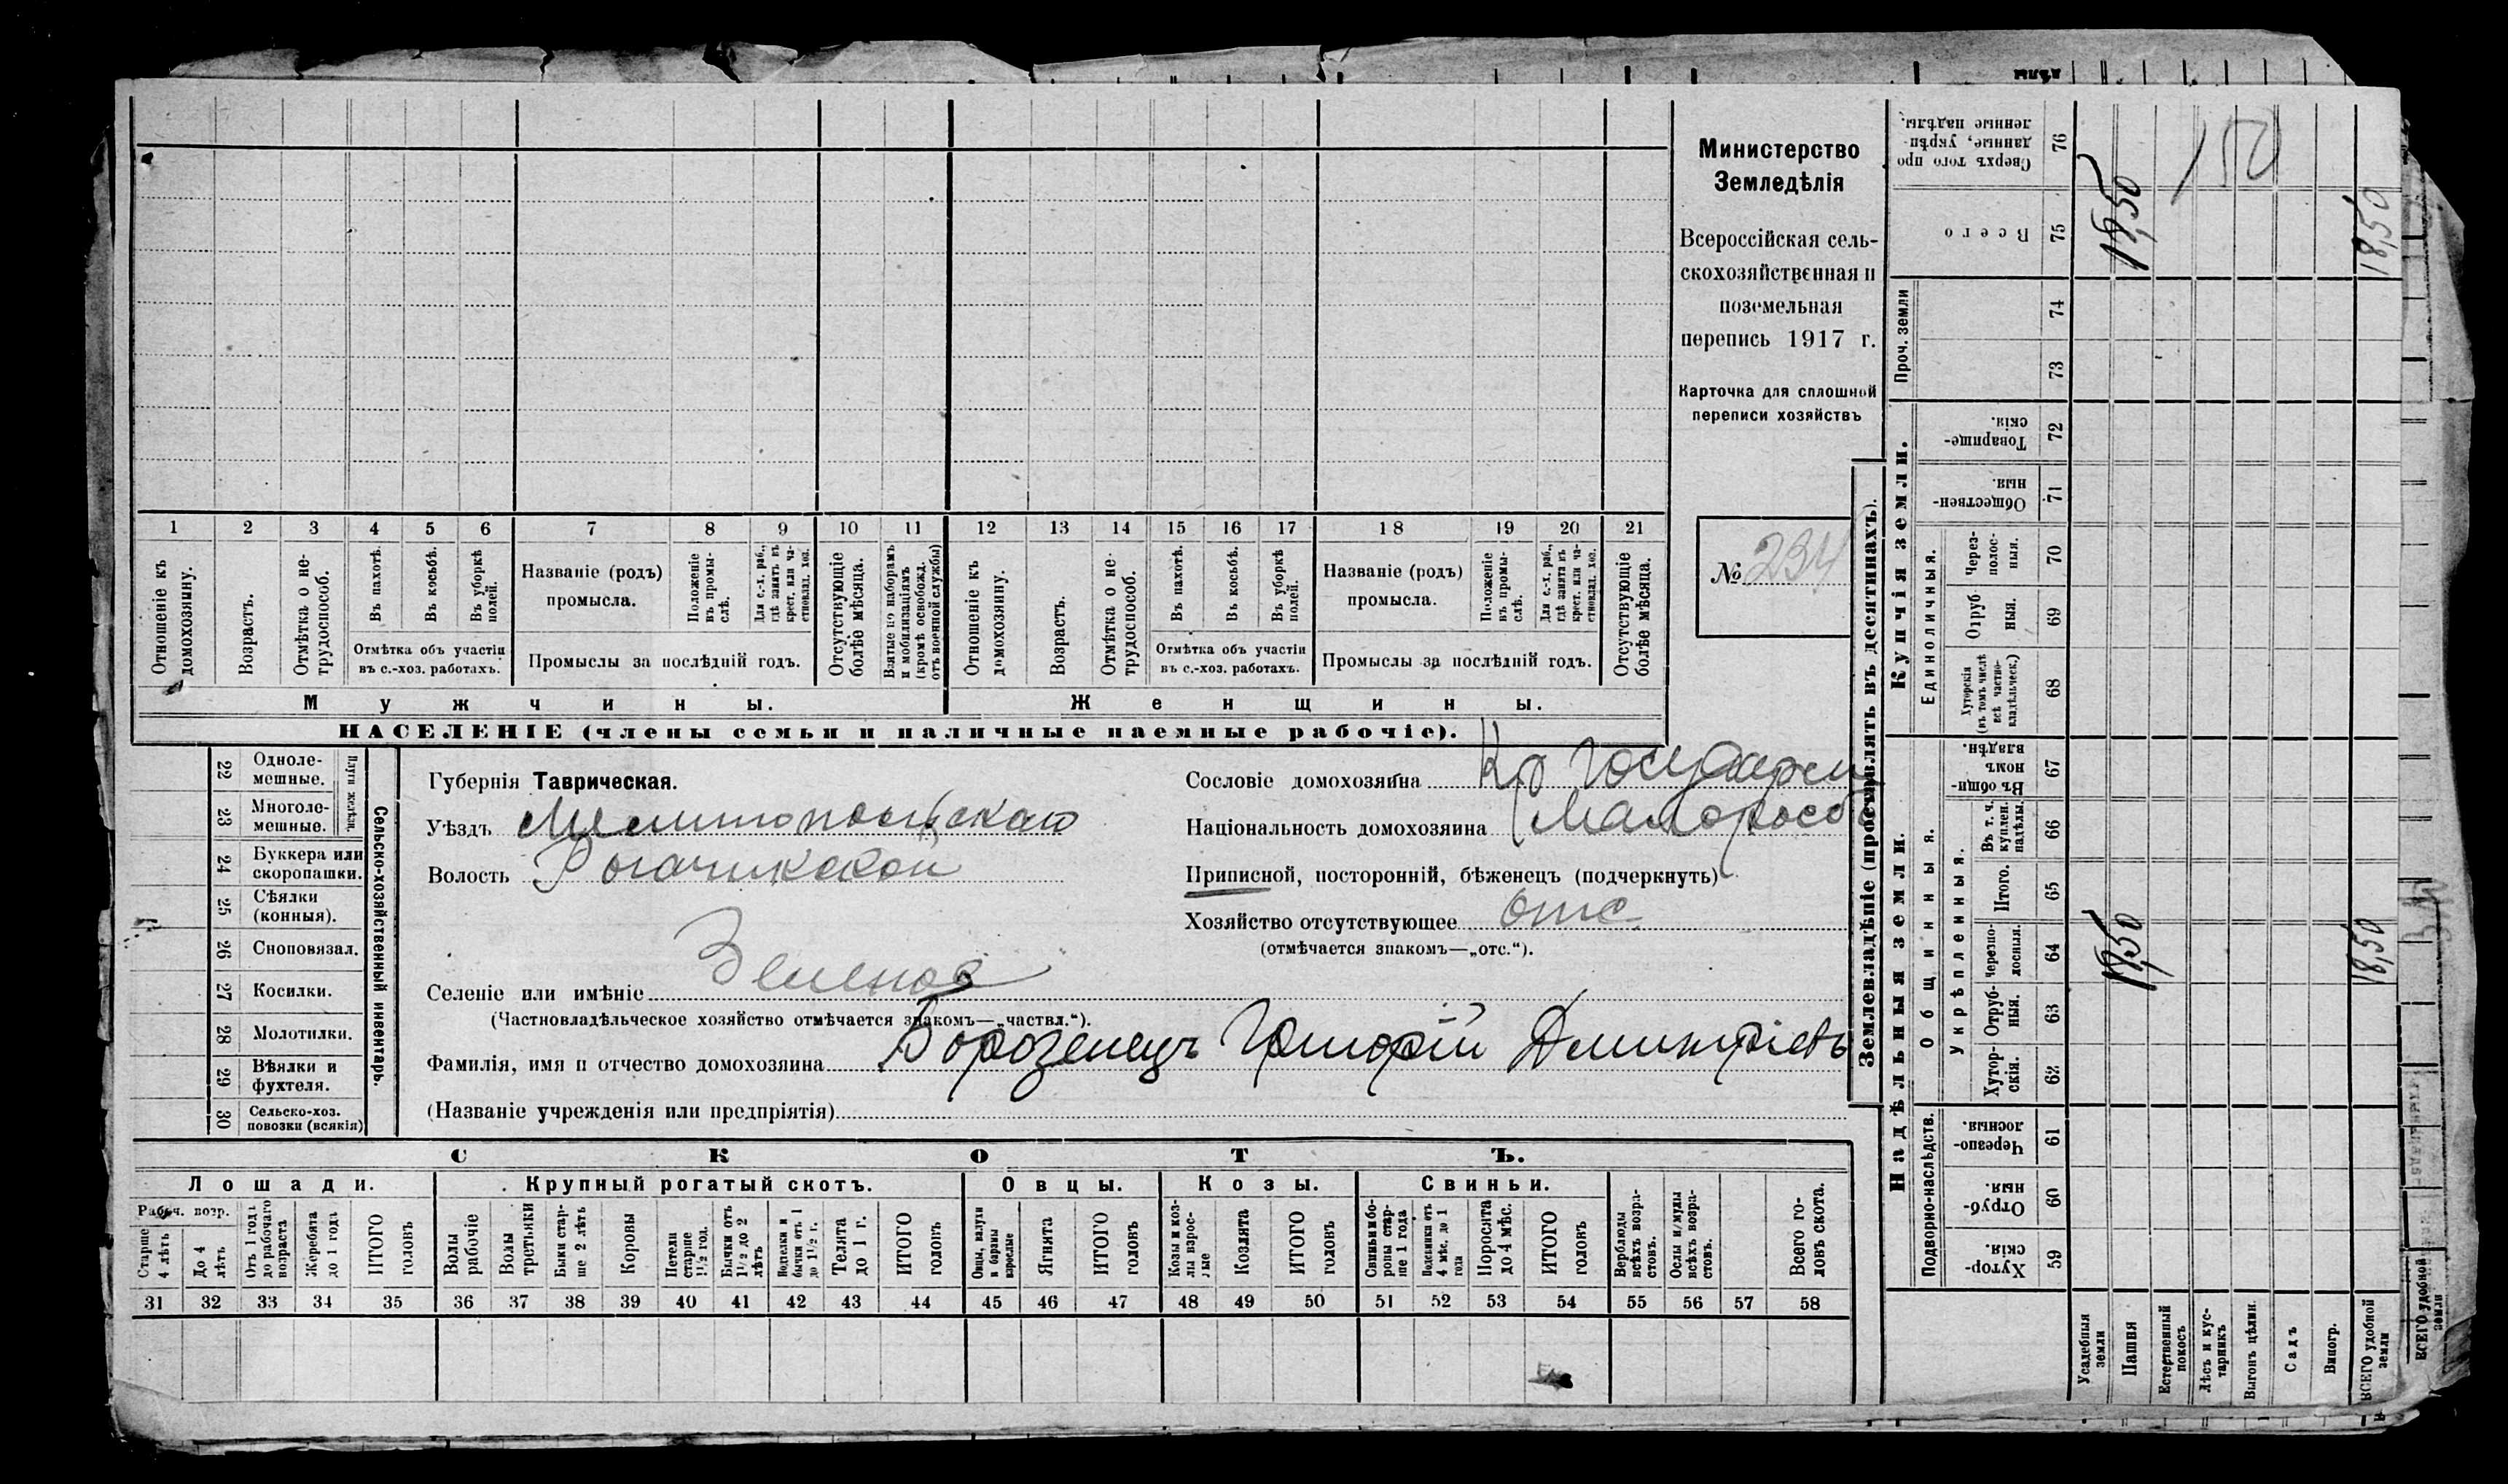 Министерство
Земледѣлія
Всероссійская сель-
скохозяйственная и
поземельная
перепись 1917 г.
Карточка для сплошной
переписи хозяйствъ
№ 234
1 2 3 4 5 6 7 8 9 10 11 12 13 14 15 16 17 18 19 20 21
Отношеніе къ домохозяину.
Возрастъ.
Отмѣтка о не-трудоспособ.
Въ пахотѣ.
Въ косьбѣ.
Въ уборкѣ полей.
Отмѣтка объ участіи
въ с.-хоз. работахъ.
Названіе (родъ)
промысла.
Положеніе въ промы-слѣ.
Для с.-х. раб., гдѣ занятъ въ крест. или ча-стновлад. хоз.
Промыслы за послѣдній годъ.
Отсутствующіе болѣе мѣсяца.
Взятые по наборамъ и мобилизаціямъ (кромѣ освобожд. отъ военной службы)
Отношеніе къ домохозяину.
Возрастъ.
Отмѣтка о не-трудоспособ.
Въ пахотѣ.
Въ косьбѣ.
Въ уборкѣ полей.
Отмѣтка объ участіи
въ с.-хоз. работахъ.
Названіе (родъ)
промысла.
Положеніе въ промы-слѣ.
Для с.-х. раб., гдѣ занята въ крест. или ча-стновлад. хоз.
Промыслы за послѣдній годъ.
Отсутствующіе болѣе мѣсяца.
Мужчины. Женщины.
НАСЕЛЕНІЕ (члены семьи и наличные наемные рабочіе).
22 Одноле-мешные.
23 Многоле-мешные.
Плуги желѣзн.
24 Буккера или скоропашки.
25 Сѣялки (конныя).
26 Сноповязал.
27 Косилки.
28 Молотилки.
29 Вѣялки и фухтеля.
30 Сельско-хоз. повозки (всякія)
Сельско-хозяйственный инвентарь.
Губернія Таврическая.
Уѣздъ Мелитопольскаго
Волость Рогачикской
Селеніе или имѣніе Зеленое
(Частновладѣльческое хозяйство отмѣчается знакомъ—„частвл.“).
Фамилія, имя и отчество домохозяина Борозенецъ Григорій Дмитріевъ
(Названіе учрежденія или предпріятія)
Сословіе домохозяина Кр
Національность домохозяина Малоросс
Приписной, посторонній, бѣженецъ (подчеркнуть)
Хозяйство отсутствующее отс.
(отмѣчается знакомъ—„отс.“).
СКОТЪ.
Лошади. Крупный рогатый скотъ. Овцы. Козы. Свиньи.
Рабоч. возр.
Старше 4 лѣтъ
До 4 лѣтъ
Отъ 1 года до рабочаго возраста
Жеребята до 1 года
ИТОГО головъ
Волы рабочіе
Волы третьяки
Быки стар-ше 2 лѣтъ
Коровы
Нетели старше 1½ год.
Бычки отъ 1½ до 2 лѣтъ
Подтелки и бычки отъ 1 до 1½ г.
Телята до 1 г.
ИТОГО головъ
Овцы, валухи и бараны взрослые
Ягнята
ИТОГО головъ
Козы и коз-лы взрос-лые
Козлята
ИТОГО головъ
Свиньи и бо-ровы стар-ше 1 года
Подсвинки отъ 4 мѣс. до 1 года
Поросята до 4 мѣс.
ИТОГО головъ
Верблюды всѣхъ возра-стовъ.
Ослы и мулы всѣхъ возра-стовъ.
Всего го-ловъ скота.
31 32 33 34 35 36 37 38 39 40 41 42 43 44 45 46 47 48 49 50 51 52 53 54 55 56 57 58
Землевладѣніе (проставлять въ десятинахъ).
Купчія земли.
Надѣльныя земли.
Сверхъ того про данные, укрѣп-ленные надѣлы. 76
Всего 75 18,50 18,50
150
Проч. земли 74 73
Товарище-скія. 72
Обществен-ныя. 71
Единоличныя.
Через-полос-ныя. 70
Отруб-ныя. 69
Хуторскія (въ томъ числѣ всѣ частно-владѣльческ.) 68
Общинныя.
Въ общи-номъ владѣн. 67
Укрѣпленныя.
Въ т. ч. куплен. надѣлы. 66
Итого. 65
Черезпо-лосныя. 64 18,50 18,50
Отруб-ныя. 63
Хутор-скія. 62
Подворно-наслѣдств.
Черезпо-лосныя. 61
Отруб-ныя. 60
Хутор-скія. 59
Усадебныя земли
Пашня
Естественный покосъ
Лѣсъ и кус-тарникъ
Выгонъ цѣлин.
Садъ
Виногр.
ВСЕГО удобной земли
ВСЕГО удобной земли